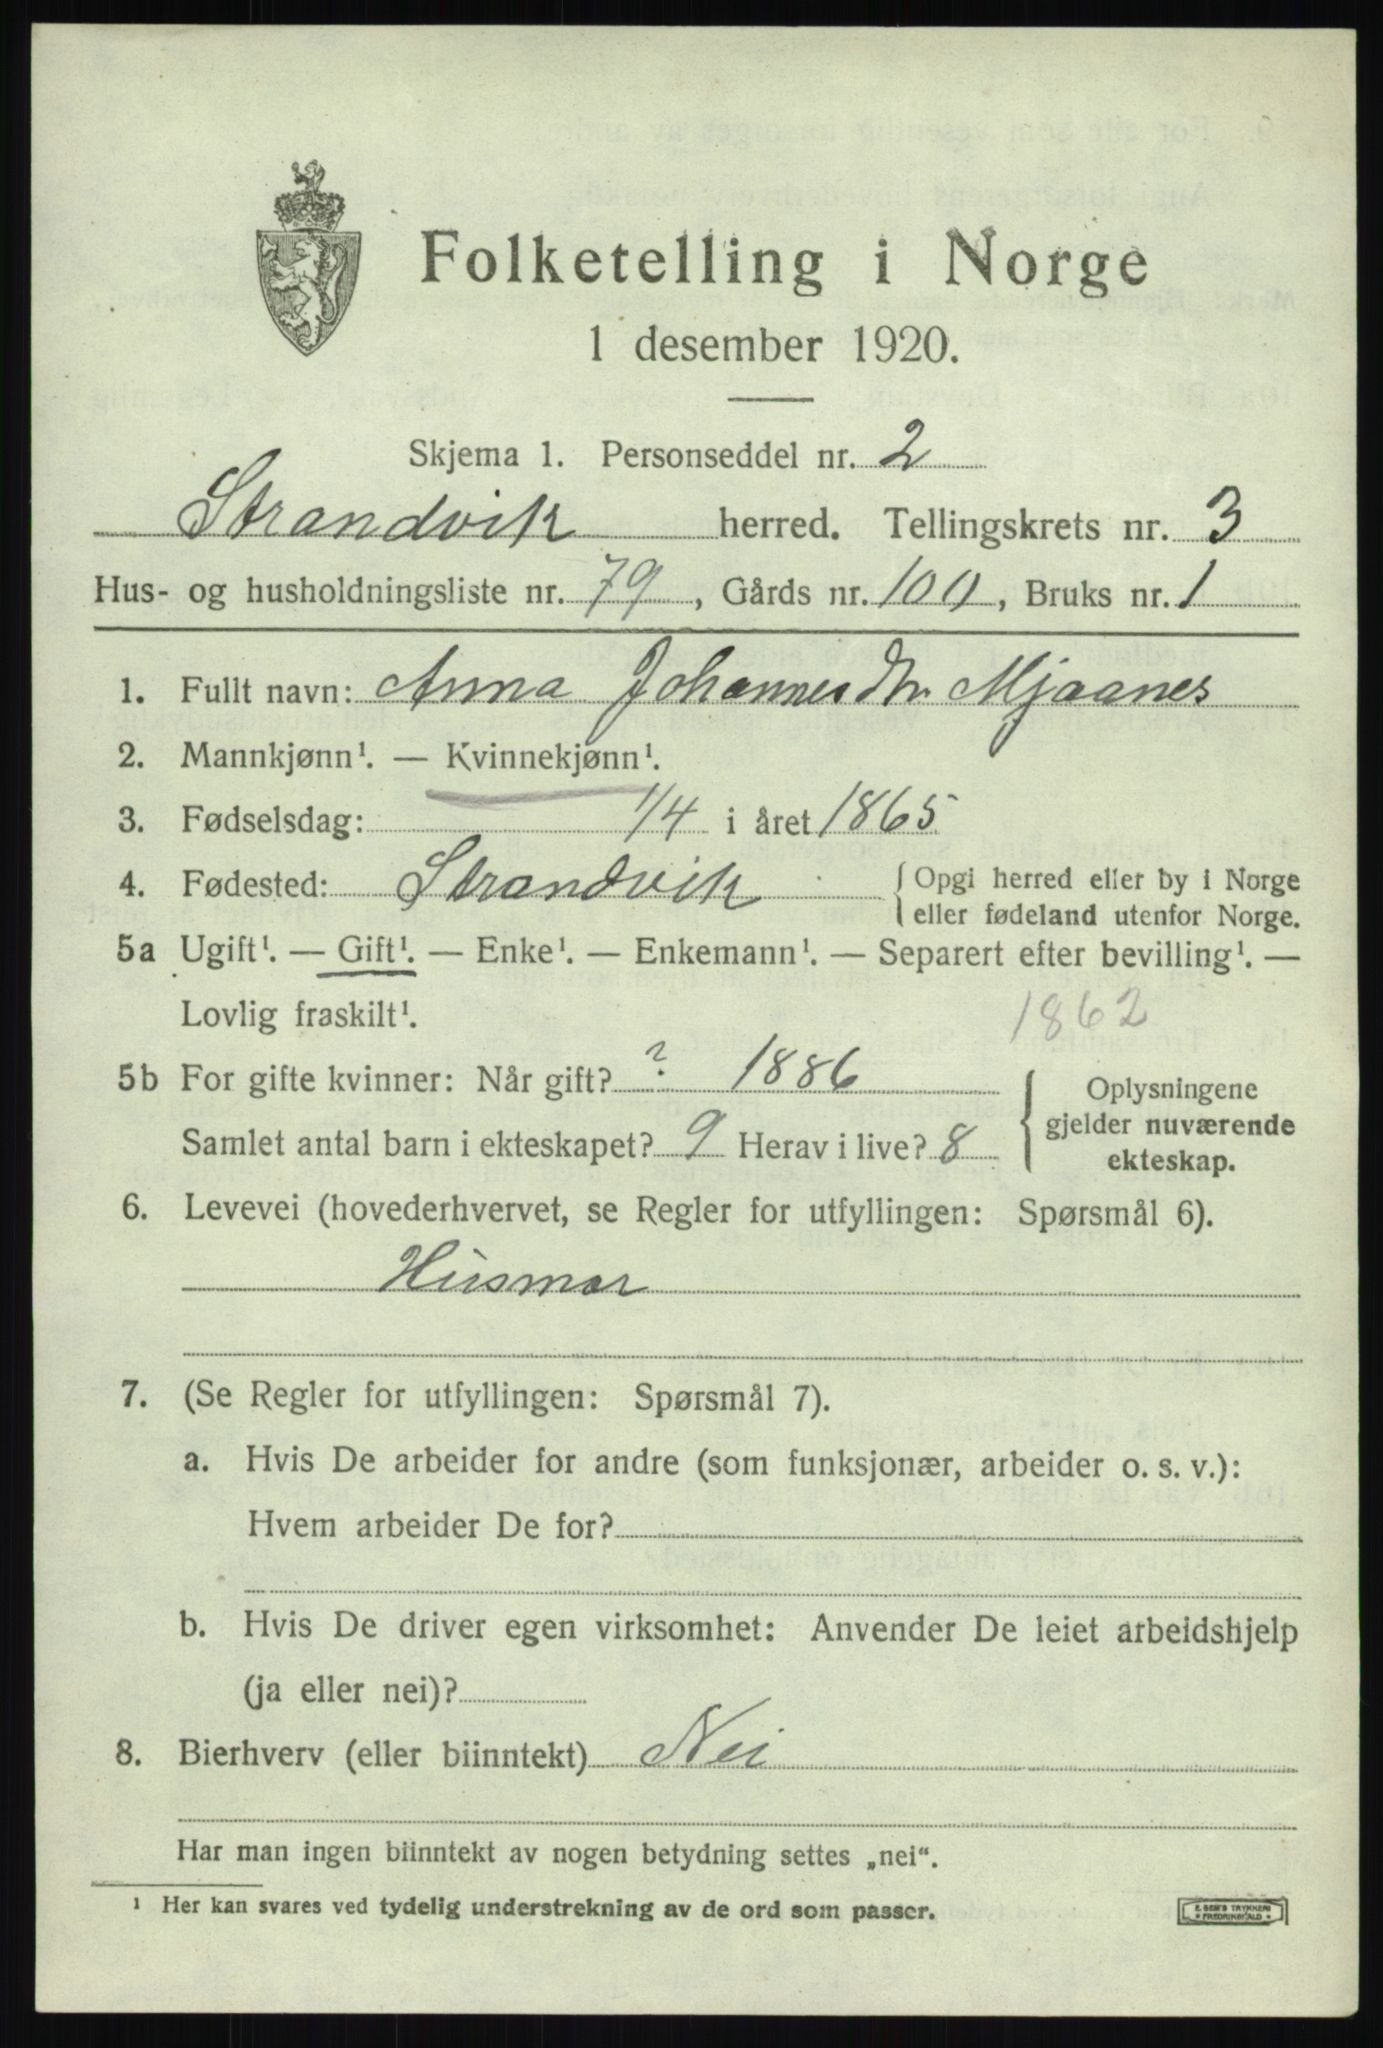 Folketelling i Norge
1 desember 1920.
Skjema 1. Personseddel nr. 2
Strandvik herred. Tellingskrets nr. 3
Hus- og husholdningsliste nr. 79, Gårds nr. 100, Bruks nr. 1
1. Fullt navn: Anna Johannesdtr Mjaanes
2. Mannkjønn¹. — Kvinnekjønn¹.
3. Fødselsdag: 1/4 i året 1865
4. Fødested: Strandvik { Opgi herred eller by i Norge
eller fødeland utenfor Norge.
5a Ugift¹. — Gift¹. — Enke¹. — Enkemann¹. — Separert efter bevilling¹. —
Lovlig fraskilt¹. 1862
5b For gifte kvinner: Når gift? ? 1886
Samlet antal barn i ekteskapet? 9 Herav i live? 8
{ Oplysningene
gjelder nuværende
ekteskap.
6. Levevei (hovederhvervet, se Regler for utfyllingen: Spørsmål 6).
Husmor
7. (Se Regler for utfyllingen: Spørsmål 7).
a. Hvis De arbeider for andre (som funksjonær, arbeider o. s. v.):
Hvem arbeider De for?
b. Hvis De driver egen virksomhet: Anvender De leiet arbeidshjelp
(ja eller nei)?
8. Bierhverv (eller biinntekt) Nei
Har man ingen biinntekt av nogen betydning settes „nei“.
¹ Her kan svares ved tydelig understrekning av de ord som passer.
E. SEM'S TRYKKERI
FREDRIKSHALD